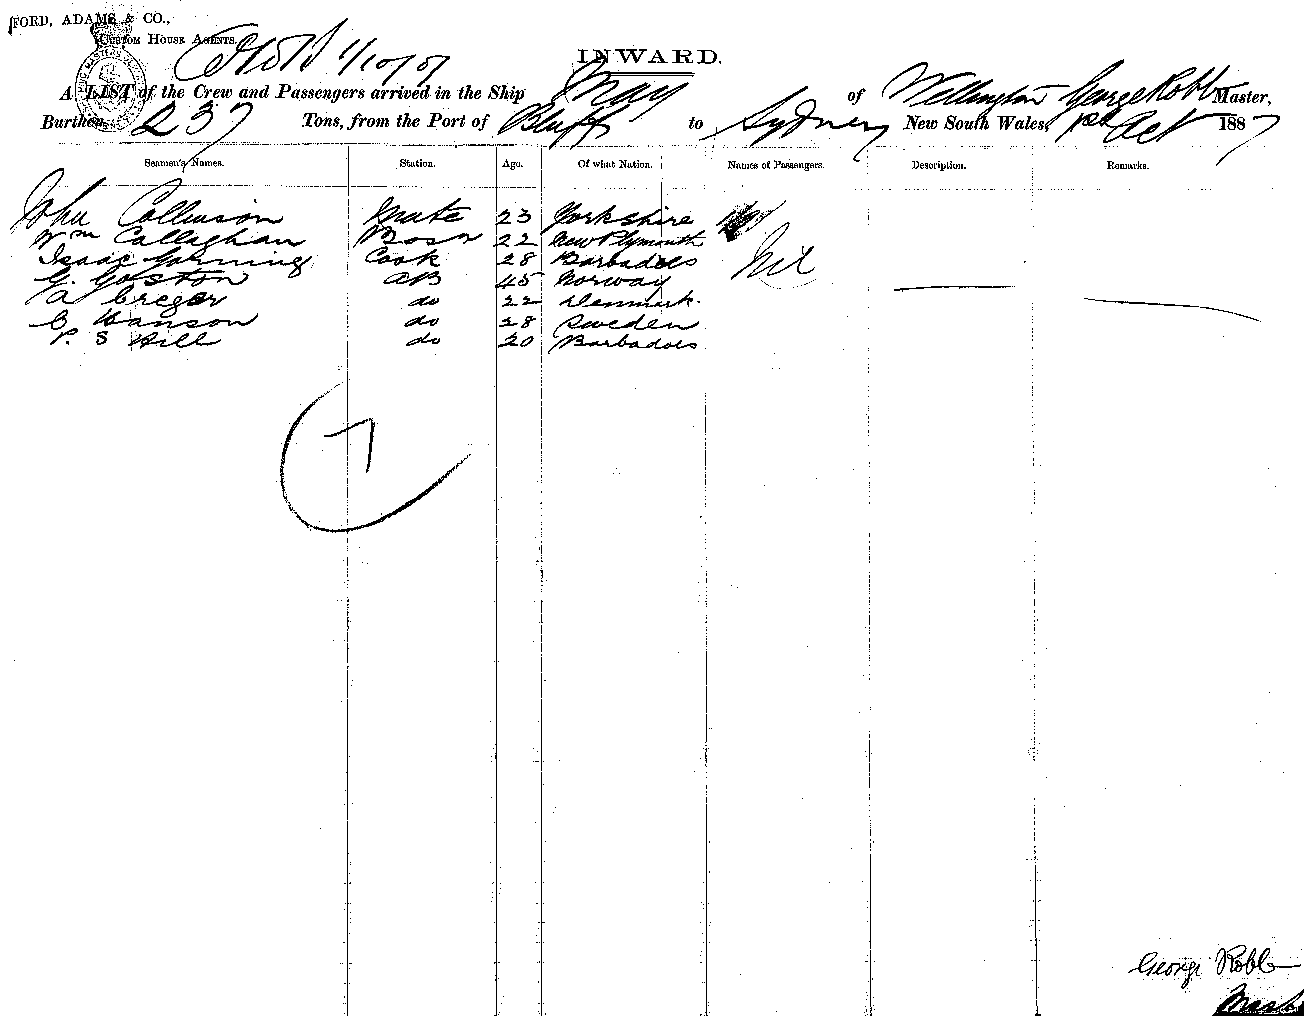 FORD, ADAMS & CO.,
CUSTOM HOUSE AGENTS.
1/10/87
INWARD.
A LIST of the Crew and Passengers arrived in the Ship May of Wellington George Robb Master,
Burthen 237 Tons, from the Port of Bluff to Sydney New South Wales, 1st Oct 1887
Seamen's Names. Station. Age. Of what Nation. Names of Passengers. Description. Remarks.
John Collinson Mate 23 Yorkshire
Wm Callaghan Bosn 22 New Plymouth
Isaac Cook 28 Barbadoes Nil
G. Goston AB 45 Norway
A Creger do 22 Denmark
C Hanson do 28 Sweden
P. S Hill do 20 Barbadoes
7
George Robb
Master